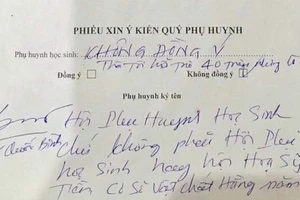 PHIẾU XIN Ý KIẾN QUÝ PHỤ HUYNH
Phụ huynh học sinh: KHÔNG ĐỒNG Ý
Thu Tôi hỗ trợ 40 trăm
Đồng ý Không đồng ý
Phụ huynh ký tên
Hội Phụ Huynh Học Sinh
Quốc Bình chứ không phải Hội Phụ
học Sinh hay hội Học Sinh
Tiền Cơ Sở Vật chất Hằng năm